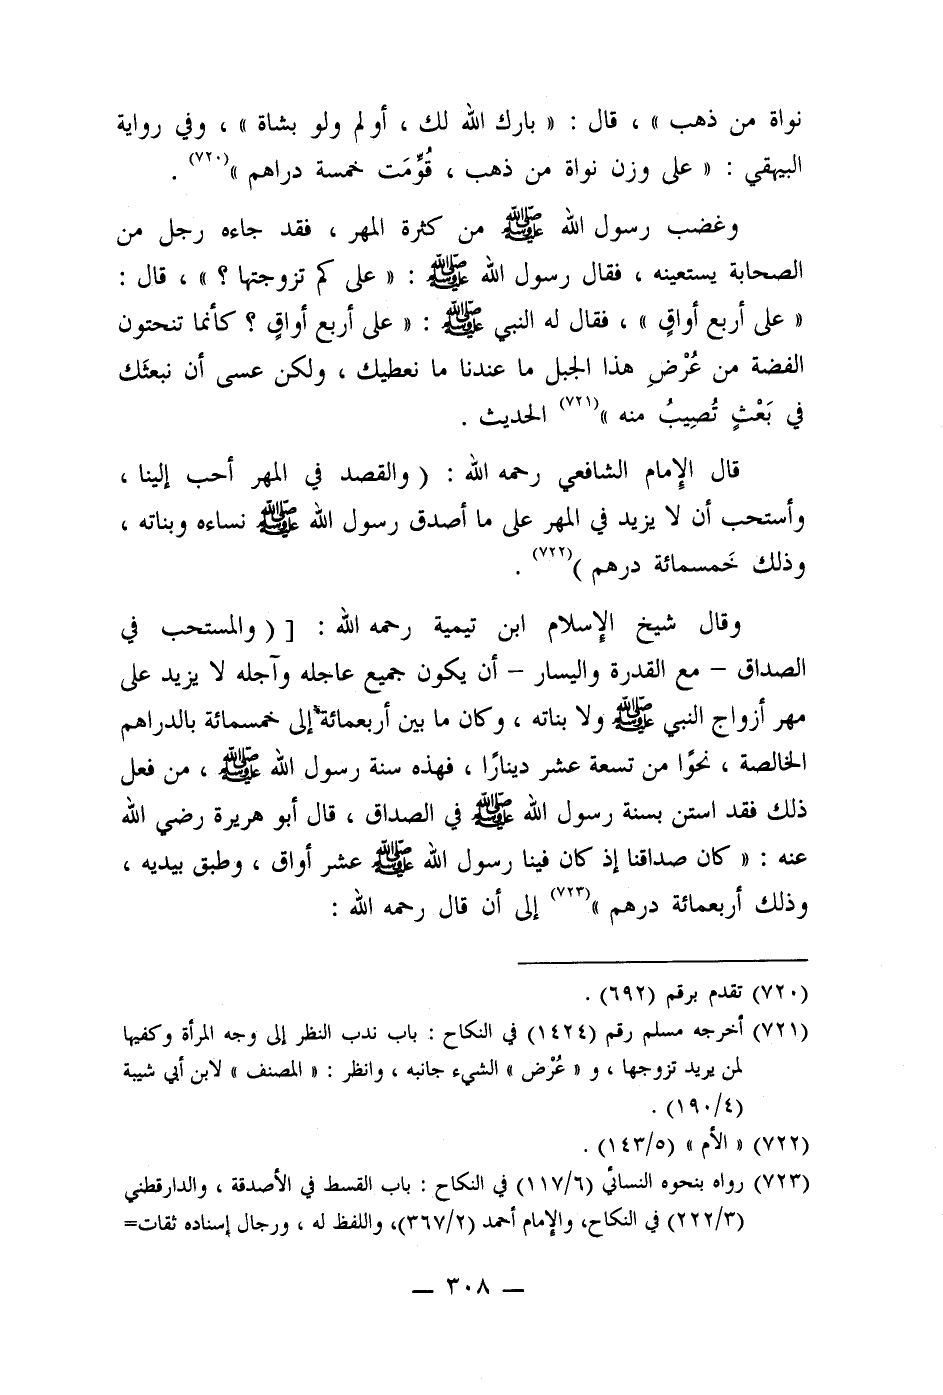 نواة من ذهب » ، قال : « بارك الله لك ، أولم ولو بشاة » ، وفي رواية
البيهقي : « على وزن نواة من ذهب ، قُوِّمَت خمسة دراهم »(٧٢٠) .
وغضب رسول الله ﷺ من كثرة المهر ، فقد جاءه رجل من
الصحابة يستعينه ، فقال رسول الله ﷺ : « على كم تزوجتها ؟ » ، قال :
« على أربع أواقٍ » ، فقال له النبي ﷺ : « على أربع أواقٍ ؟ كأنما تنحتون
الفضة من عُرْضِ هذا الجبل ما عندنا ما نعطيك ، ولكن عسى أن نبعثَك
في بَعْثٍ تُصِيبُ منه »(٧٢١) الحديث .
قال الإمام الشافعي رحمه الله : ( والقصد في المهر أحب إلينا ،
وأستحب أن لا يزيد في المهر على ما أصدق رسول الله ﷺ نساءه وبناته ،
وذلك خَمسمائة درهم )(٧٢٢) .
وقال شيخ الإسلام ابن تيمية رحمه الله : [ ( والمستحب في
الصداق – مع القدرة واليسار – أن يكون جميع عاجله وآجله لا يزيد على
مهر أزواج النبي ﷺ ولا بناته ، وكان ما بين أربعمائة إلى خمسمائة بالدراهم
الخالصة ، نحوًا من تسعة عشر دينارًا ، فهذه سنة رسول الله ﷺ ، من فعل
ذلك فقد استن بسنة رسول الله ﷺ في الصداق ، قال أبو هريرة رضي الله
عنه : « كان صداقنا إذ كان فينا رسول الله ﷺ عشر أواق ، وطبق بيديه ،
وذلك أربعمائة درهم »(٧٢٣) إلى أن قال رحمه الله :
(٧٢٠) تقدم برقم (٦٩٢) .
(٧٢١) أخرجه مسلم رقم (١٤٢٤) في النكاح : باب ندب النظر إلى وجه المرأة وكفيها
لمن يريد تزوجها ، و « عُرْض » الشيء جانبه ، وانظر : « المصنف » لابن أبي شيبة
(١٩٠/٤) .
(٧٢٢) « الأم » (١٤٣/٥) .
(٧٢٣) رواه بنحوه النسائي (١١٧/٦) في النكاح : باب القسط في الأصدقة ، والدارقطني
(٢٢٢/٣) في النكاح، والإمام أحمد (٣٦٧/٢)، واللفظ له ، ورجال إسناده ثقات=
— ٣٠٨ —